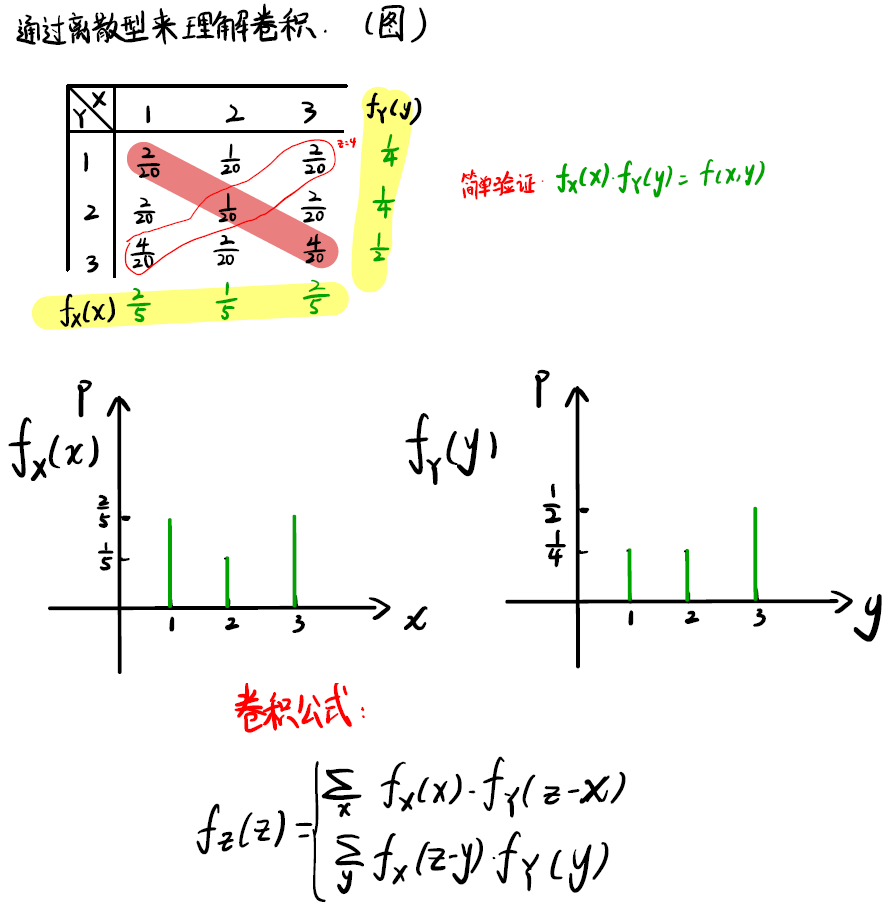 通过离散型来理解卷积. (图)
Y X 1 2 3 f_Y(y)
1 2/20 1/20 2/20 z=4 1/4
2 2/20 1/20 2/20 1/4
3 4/20 2/20 4/20 1/2
f_X(x) 2/5 1/5 2/5
简单验证: f_X(x)·f_Y(y)=f(x,y)
P
f_X(x)
2/5
1/5
1 2 3 x
P
f_Y(y)
1/2
1/4
1 2 3 y
卷积公式:
f_Z(z)={ Σ_x f_X(x)·f_Y(z-x)
Σ_y f_X(z-y)·f_Y(y)